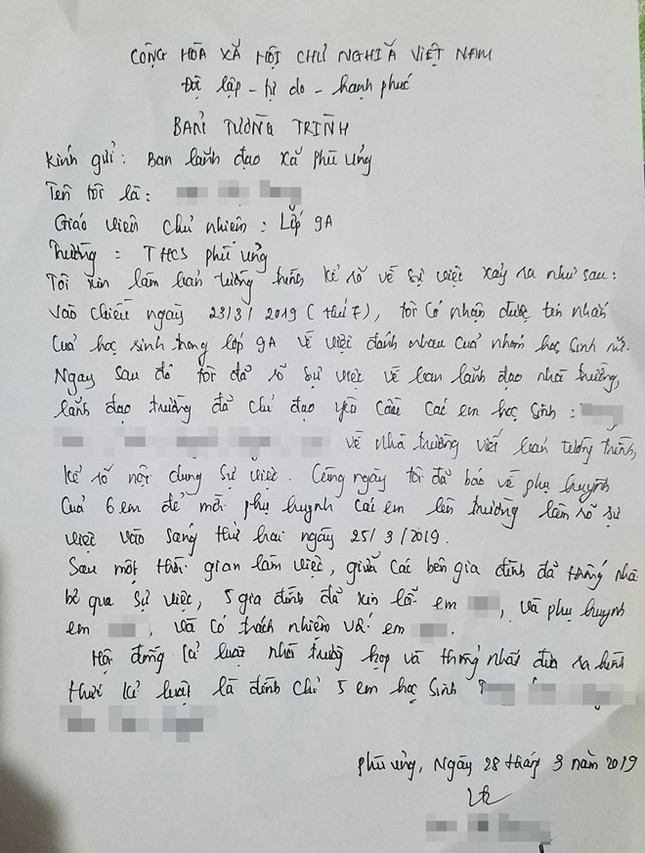 CỘNG HÒA XÃ HỘI CHỦ NGHĨA VIỆT NAM
Độ lập - tự do - hạnh phúc
BẢN TƯỜNG TRÌNH
Kính gửi : Ban lãnh đạo xã Phù Ủng
Tên tôi là :
Giáo viên chủ nhiệm : Lớp 9A
Trường : THCS phù ủng
Tôi xin làm bản tường trình kể rõ về sự việc xảy ra như sau :
Vào chiều ngày 23/3/2019 ( thứ 7 ), tôi có nhận được tin nhắn
của học sinh trong lớp 9A về việc đánh nhau của nhóm học sinh nữ.
Ngay sau đó tôi đã sự việc về ban lãnh đạo nhà trường,
lãnh đạo trường đã chỉ đạo yêu cầu các em học sinh :
về nhà trường viết bản tường trình,
kể rõ nội dung sự việc. Cùng ngày tôi đã báo về phụ huynh
của 6 em để mời phụ huynh các em lên trường làm rõ sự
việc vào sáng thứ hai ngày 25/3/2019.
Sau một thời gian làm việc, giữa các bên gia đình đã thống nhấ
bỏ qua sự việc, 5 gia đình đã xin lỗi em , và phụ huynh
em , và có trách nhiệm với em .
Hội đồng kỉ luật nhà trường họp và thống nhất đưa ra hình
thức kỉ luật là đình chỉ 5 em học sinh
Phù ủng, Ngày 28 tháng 3 năm 2019